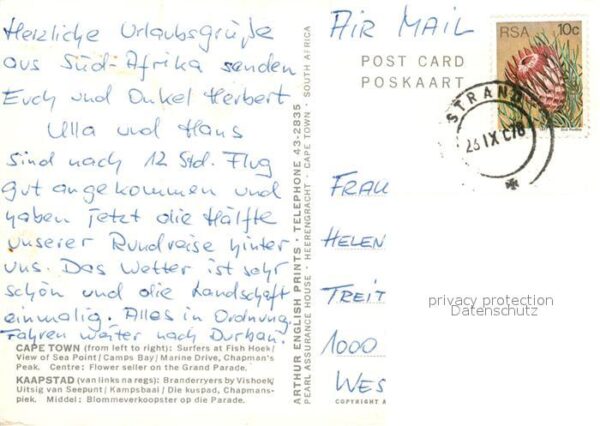 Herzliche Urlaubsgrüße
aus Süd-Afrika senden
Euch und Onkel Herbert
Ulla und Hans
Sind nach 12 Std. Flug
gut angekommen und
haben jetzt die Hälfte
unserer Rundreise hinter
uns. Das Wetter ist sehr
schön und die Landschaft
einmalig. Alles in Ordnung.
Fahren weiter nach Durban.
CAPE TOWN (from left to right): Surfers at Fish Hoek/
View of Sea Point/Camps Bay/Marine Drive, Chapman's
Peak. Centre: Flower seller on the Grand Parade.
KAAPSTAD (van links na regs): Branderryers by Vishoek/
Uitsig van Seepunt/Kampsbaai/Die kuspad, Chapmans-
piek. Middel: Blommeverkoopster op die Parade.
ARTHUR ENGLISH PRINTS · TELEPHONE 43-2835
PEARL ASSURANCE HOUSE · HEERENGRACHT · CAPE TOWN · SOUTH AFRICA
AIR MAIL
POST CARD
POSKAART
RSA 10c
STRAND
FRAU
HELEN
TREIT
privacy protection
Datenschutz
1000
WES
COPYRIGHT A